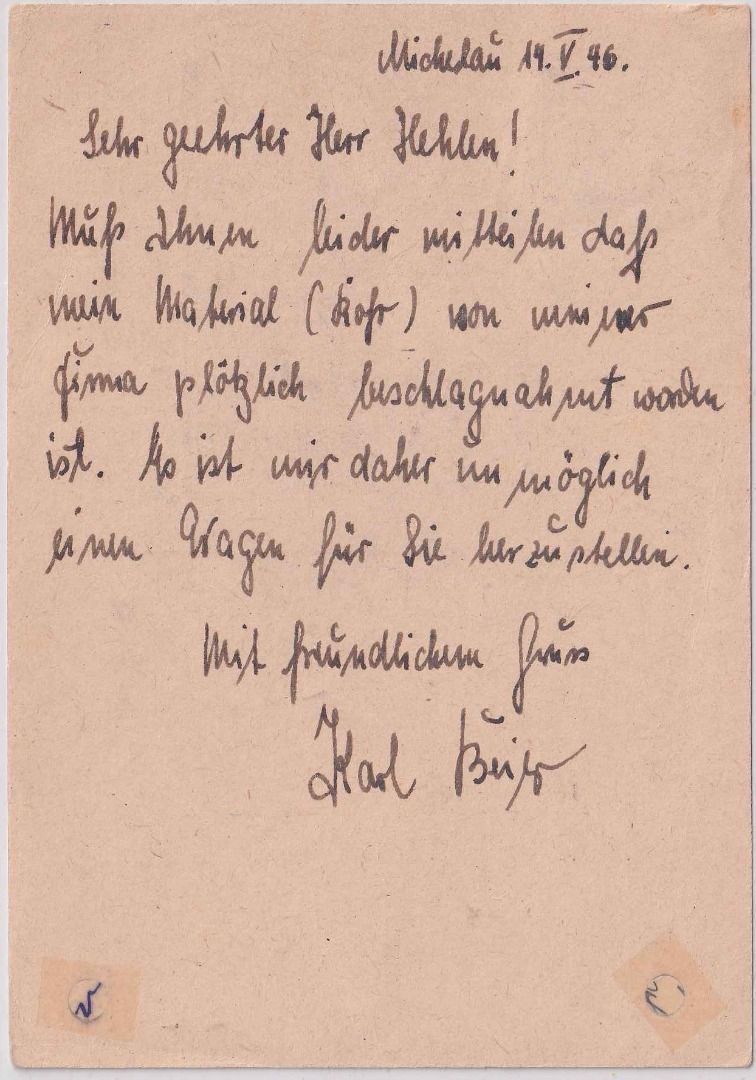 Michelau 14. V. 46.
Sehr geehrter Herr Hehlen!
Muß Ihnen leider mitteilen daß
mein Material (Rohr) von meiner
Firma plötzlich beschlagnahmt worden
ist. Es ist mir daher unmöglich
einen Wagen für Sie herzustellen.
Mit freundlichem Gruss
Karl Beier